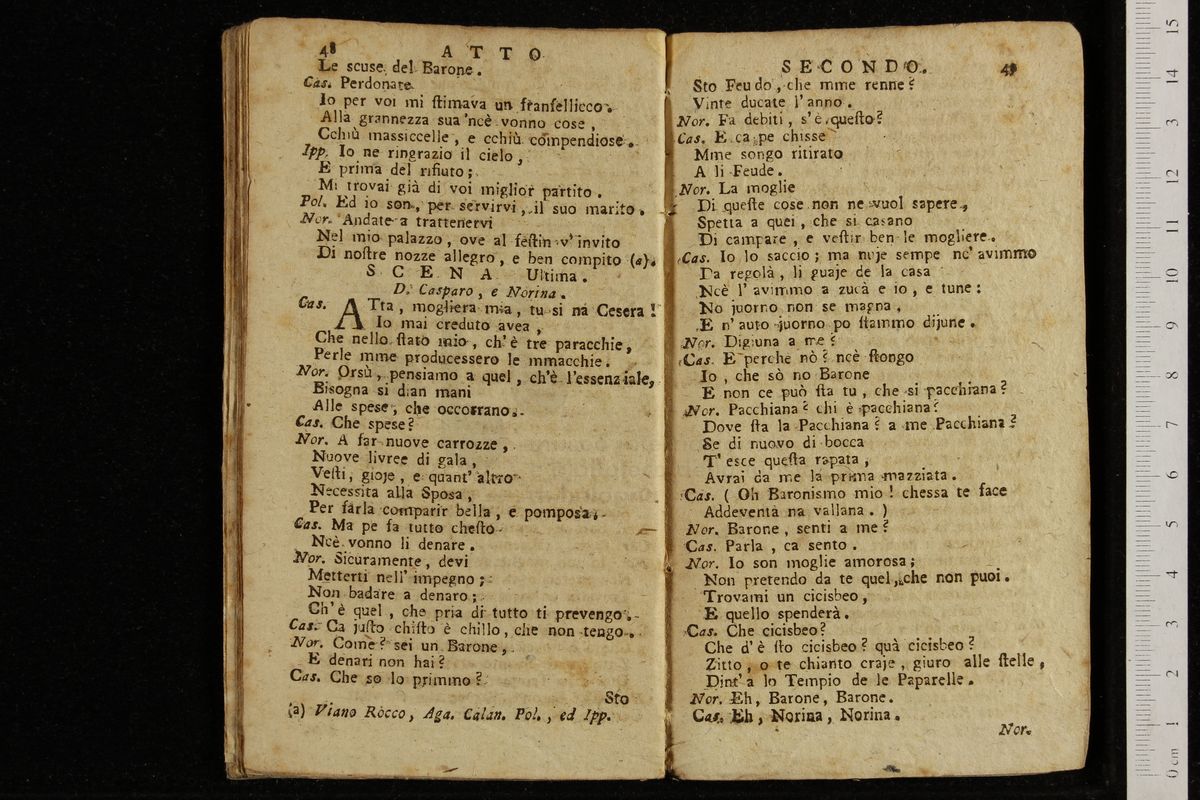 48 ATTO
Le scuse del Barone.
Cas. Perdonate
Io per voi mi ſtimava un franſellicco.
Alla grannezza sua 'ncè vonno cose,
Cchiù massiccelle, e cchiù compendiose.
Ipp. Io ne ringrazio il cielo,
E prima del rifiuto;
Mi trovai già di voi miglior partito.
Pol. Ed io son, per servirvi, il suo marito.
Nor. Andate a trattenervi
Nel mio palazzo, ove al feſtin v'invito
Di noſtre nozze allegro, e ben compito (a).
SCENA Ultima.
D. Casparo, e Norina.
Cas. ATta, mogliera mia, tu si na Cesera!
Io mai creduto avea,
Che nello ſtato mio, ch'è tre paracchie,
Perle mme producessero le mmacchie.
Nor. Orsù, pensiamo a quel, ch'è l'essenziale,
Bisogna si dian mani
Alle spese, che occorrano.
Cas. Che spese?
Nor. A far nuove carrozze,
Nuove livree di gala,
Veſti, gioje, e quant' altro
Necessita alla Sposa,
Per farla comparir bella, e pomposa.
Cas. Ma pe fa tutto cheſto
Ncè vonno li denare.
Nor. Sicuramente, devi
Metterti nell' impegno;
Non badare a denaro;
Ch'è quel, che pria di tutto ti prevengo.
Cas. Ca juſto chiſto è chillo, che non tengo.
Nor. Come? sei un Barone,
E denari non hai?
Cas. Che so lo primmo?
Sto
(a) Viano Rocco, Aga. Calan. Pol., ed Ipp.
SECONDO. 49
Sto Feudo, che mme renne?
Vinte ducate l'anno.
Nor. Fa debiti, s'è queſto?
Cas. E ca pe chisse
Mme songo ritirato
A li Feude.
Nor. La moglie
Di queſte cose non ne vuol sapere,
Spetta a quei, che si casano
Di campare, e veſtir ben le mogliere.
Cas. Io lo saccio; ma nuje sempe nc' avimmo
Da regolà, li guaje de la casa
Ncè l' avimmo a zucà e io, e tune:
No juorno non se magna,
E n' auto juorno po ſtammo dijune.
Nor. Digiuna a me?
Cas. E perche nò? ncè ſtongo
Io, che sò no Barone
E non ce può ſta tu, che si pacchiana?
Nor. Pacchiana? chi è pacchiana?
Dove ſta la Pacchiana? a me Pacchiana?
Se di nuovo di bocca
T' esce queſta rapata,
Avrai da me la prima mazziata.
Cas. (Oh Baronismo mio! chessa te face
Addeventà na vallana.)
Nor. Barone, senti a me?
Cas. Parla, ca sento.
Nor. Io son moglie amorosa;
Non pretendo da te quel, che non puoi.
Trovami un cicisbeo,
E quello spenderà.
Cas. Che cicisbeo?
Che d' è ſto cicisbeo? quà cicisbeo?
Zitto, o te chianto craje, giuro alle ſtelle,
Dint' a lo Tempio de le Paparelle.
Nor. Eh, Barone, Barone.
Cas. Eh, Norina, Norina.
Nor.
0 cm 1 2 3 4 5 6 7 8 9 10 11 12 13 14 15